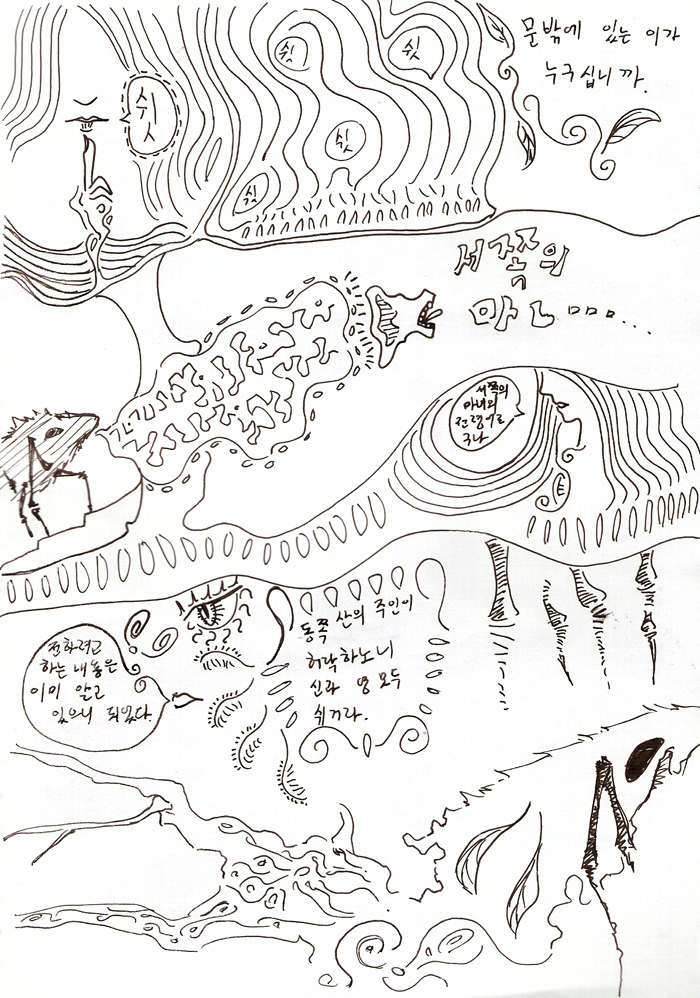 문밖에 있는 이가
누구십니까.
쉿
쉿
쉿
쉿
쉿
서쪽의
마ㄴㅁㅁㅁ...
서쪽의
마녀의
전령이로
구나
동쪽 산의 주인이
허락하노니
신과 영 모두
쉬거라.
전하려고
하는 내용은
이미 알고
있으니 되었다.